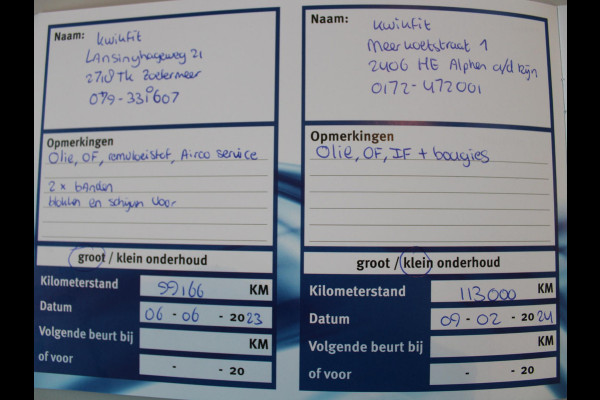 Naam: kwikfit
Lansinghageweg 21
2718TK Zoetermeer
079-3311607
Opmerkingen
Olie, OF, remvloeistof, Airco service
2x banden
blokken en schijven voor
groot / klein onderhoud
Kilometerstand 99166 KM
Datum 06 - 06 - 2023
Volgende beurt bij KM
of voor - - 20
Naam: kwikfit
Meerkoetstraat 1
2406 HE Alphen a/d Rijn
0172-472001
Opmerkingen
Olie, OF, IF + bougies
groot / klein onderhoud
Kilometerstand 113000 KM
Datum 09 - 02 - 2024
Volgende beurt bij KM
of voor - - 20